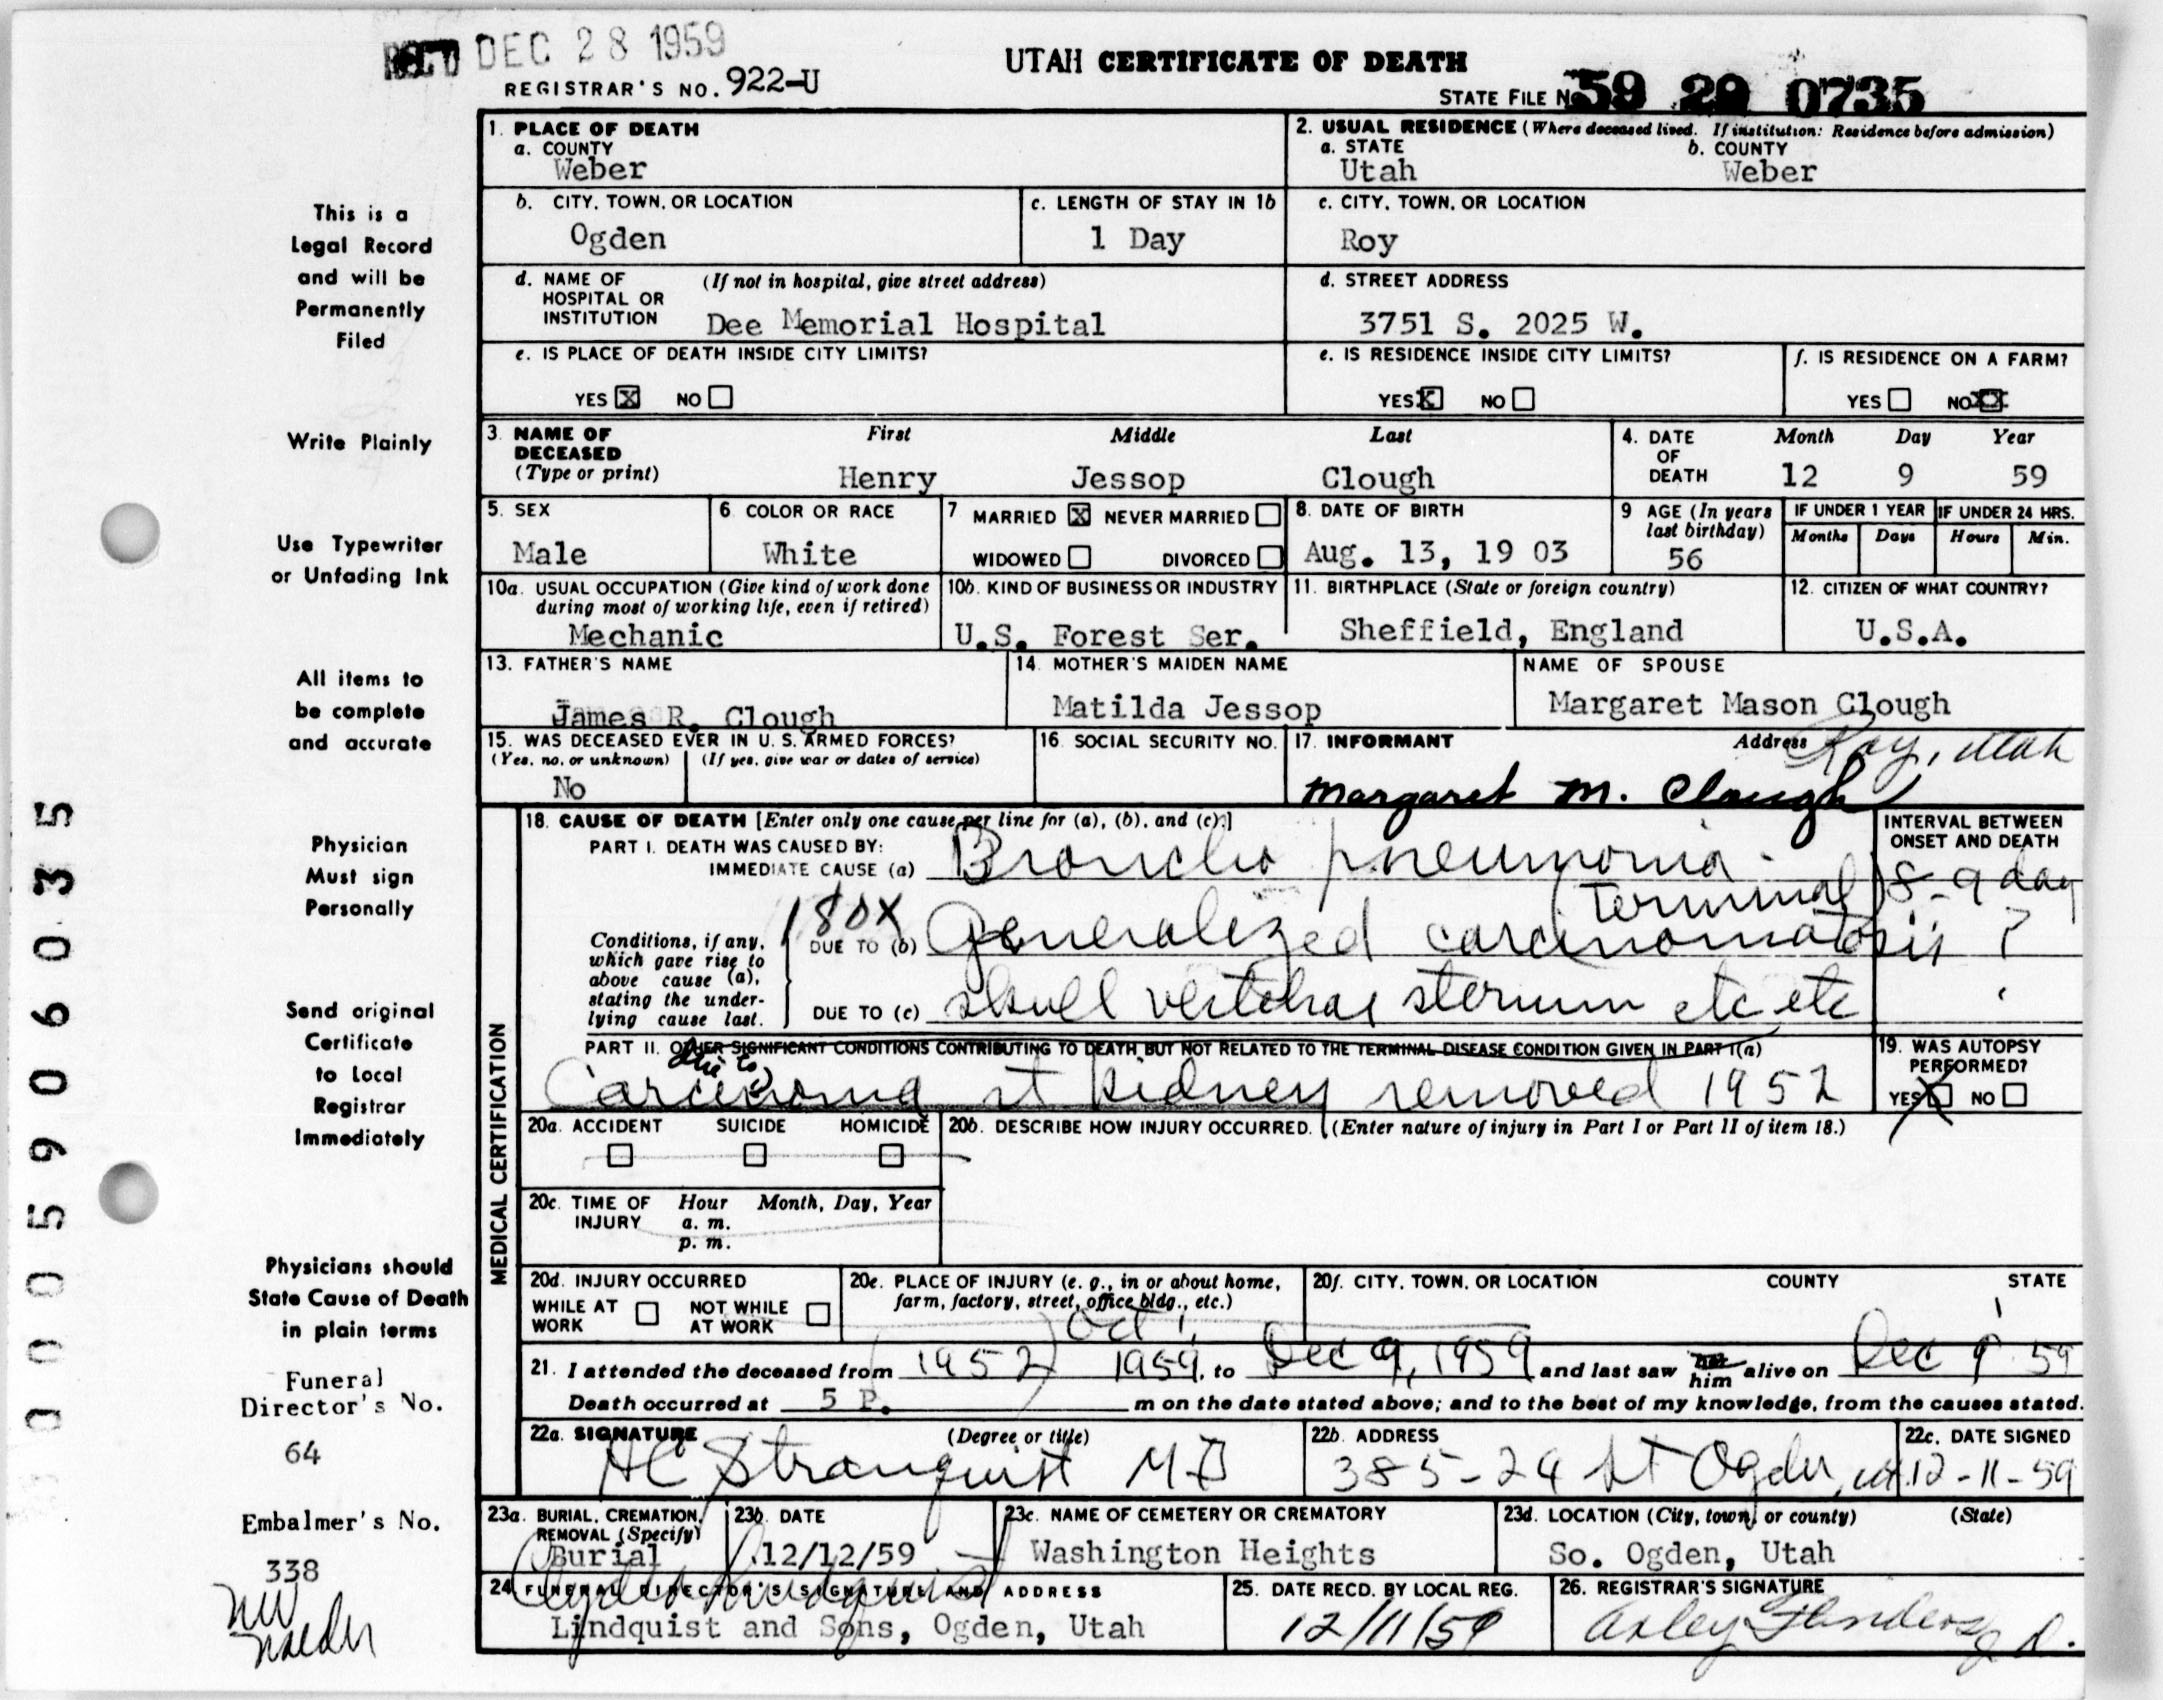 REC'D DEC 28 1959
REGISTRAR'S NO. 922-U
UTAH CERTIFICATE OF DEATH
STATE FILE No 59 29 0735
1. PLACE OF DEATH
a. COUNTY
Weber
2. USUAL RESIDENCE (Where deceased lived. If institution: Residence before admission)
a. STATE b. COUNTY
Utah Weber
b. CITY, TOWN, OR LOCATION
Ogden
c. LENGTH OF STAY IN 1b
1 Day
c. CITY, TOWN, OR LOCATION
Roy
d. NAME OF HOSPITAL OR INSTITUTION (If not in hospital, give street address)
Dee Memorial Hospital
d. STREET ADDRESS
3751 S. 2025 W.
e. IS PLACE OF DEATH INSIDE CITY LIMITS?
YES X NO
e. IS RESIDENCE INSIDE CITY LIMITS?
YES X NO
f. IS RESIDENCE ON A FARM?
YES NO XX
3. NAME OF DECEASED (Type or print) First Middle Last
Henry Jessop Clough
4. DATE OF DEATH Month Day Year
12 9 59
5. SEX
Male
6 COLOR OR RACE
White
7 MARRIED X NEVER MARRIED
WIDOWED DIVORCED
8. DATE OF BIRTH
Aug. 13, 19 03
9 AGE (In years last birthday)
56
IF UNDER 1 YEAR IF UNDER 24 HRS.
Months Days Hours Min.
10a. USUAL OCCUPATION (Give kind of work done during most of working life, even if retired)
Mechanic
10b. KIND OF BUSINESS OR INDUSTRY
U.S. Forest Ser.
11. BIRTHPLACE (State or foreign country)
Sheffield, England
12. CITIZEN OF WHAT COUNTRY?
U.S.A.
13. FATHER'S NAME
James R. Clough
14. MOTHER'S MAIDEN NAME
Matilda Jessop
NAME OF SPOUSE
Margaret Mason Clough
15. WAS DECEASED EVER IN U.S. ARMED FORCES?
(Yes, no, or unknown) (If yes, give war or dates of service)
No
16. SOCIAL SECURITY NO.
17. INFORMANT Address Roy, Utah
Margaret M. Clough
MEDICAL CERTIFICATION
18. CAUSE OF DEATH [Enter only one cause per line for (a), (b), and (c).]
PART I. DEATH WAS CAUSED BY:
IMMEDIATE CAUSE (a) Broncho pneumonia
terminal
INTERVAL BETWEEN ONSET AND DEATH
8-9 day
Conditions, if any, which gave rise to above cause (a), stating the underlying cause last.
180X
DUE TO (b) Generalized carcinomatosis ?
DUE TO (c) skull vertebrae sternum etc etc
PART II. OTHER SIGNIFICANT CONDITIONS CONTRIBUTING TO DEATH BUT NOT RELATED TO THE TERMINAL DISEASE CONDITION GIVEN IN PART I(a)
due to
Carcinoma rt kidney removed 1952
19. WAS AUTOPSY PERFORMED?
YES X NO
20a. ACCIDENT SUICIDE HOMICIDE
20b. DESCRIBE HOW INJURY OCCURRED. (Enter nature of injury in Part I or Part II of item 18.)
20c. TIME OF INJURY Hour Month, Day, Year
a. m.
p. m.
20d. INJURY OCCURRED
WHILE AT WORK NOT WHILE AT WORK
20e. PLACE OF INJURY (e. g., in or about home, farm, factory, street, office bldg., etc.)
20f. CITY, TOWN, OR LOCATION COUNTY STATE
21. I attended the deceased from (1952) Oct 1, 1959, to Dec 9, 1959 and last saw her him alive on Dec 9 59
Death occurred at 5 P. m on the date stated above; and to the best of my knowledge, from the causes stated.
22a. SIGNATURE (Degree or title)
HC Stranquist MD
22b. ADDRESS
385-24 St Ogden, ut.
22c. DATE SIGNED
12-11-59
23a. BURIAL, CREMATION, REMOVAL (Specify)
Burial
23b. DATE
12/12/59
23c. NAME OF CEMETERY OR CREMATORY
Washington Heights
23d. LOCATION (City, town, or county) (State)
So. Ogden, Utah
24 FUNERAL DIRECTOR'S SIGNATURE AND ADDRESS
Lindquist and Sons, Ogden, Utah
25. DATE RECD. BY LOCAL REG.
12/11/59
26. REGISTRAR'S SIGNATURE
This is a
Legal Record
and will be
Permanently
Filed
Write Plainly
Use Typewriter
or Unfading Ink
All items to
be complete
and accurate
Physician
Must sign
Personally
Send original
Certificate
to Local
Registrar
Immediately
Physicians should
State Cause of Death
in plain terms
Funeral
Director's No.
64
Embalmer's No.
338
0005906035